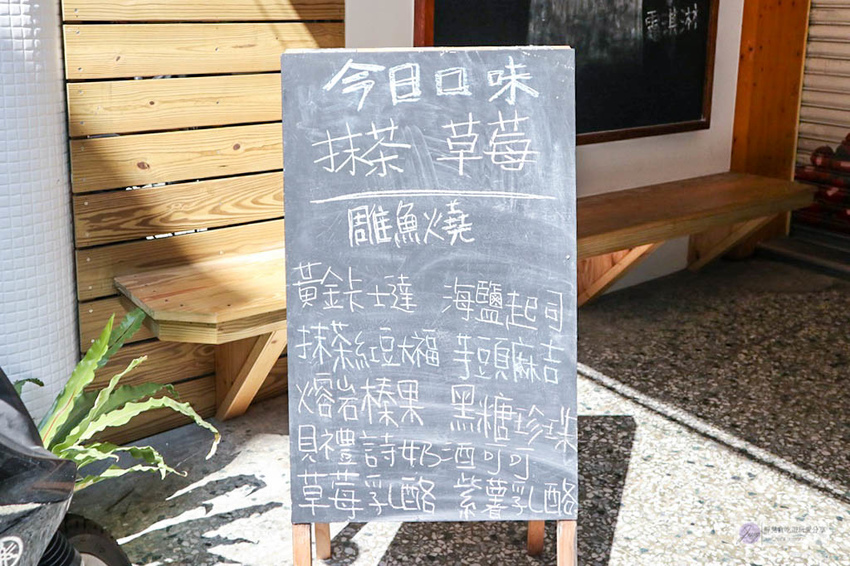 霜淇淋
今日口味
抹茶 草莓
雕魚燒
黃金卡士達 海鹽起司
抹茶紅豆大福 芋頭麻吉
熔岩榛果 黑糖珍珠
貝禮詩奶酒可可
草莓乳酪 紫薯乳酪